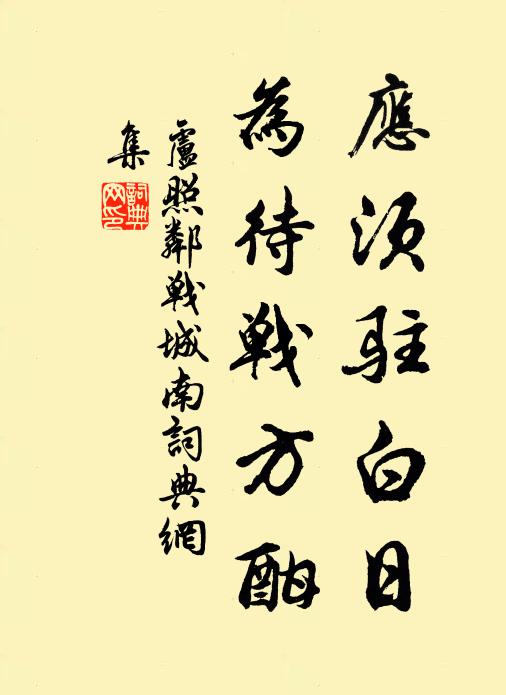 應須駐白日
為待戰方酣
盧照鄰戰城南詞典網
集
詞典
网印